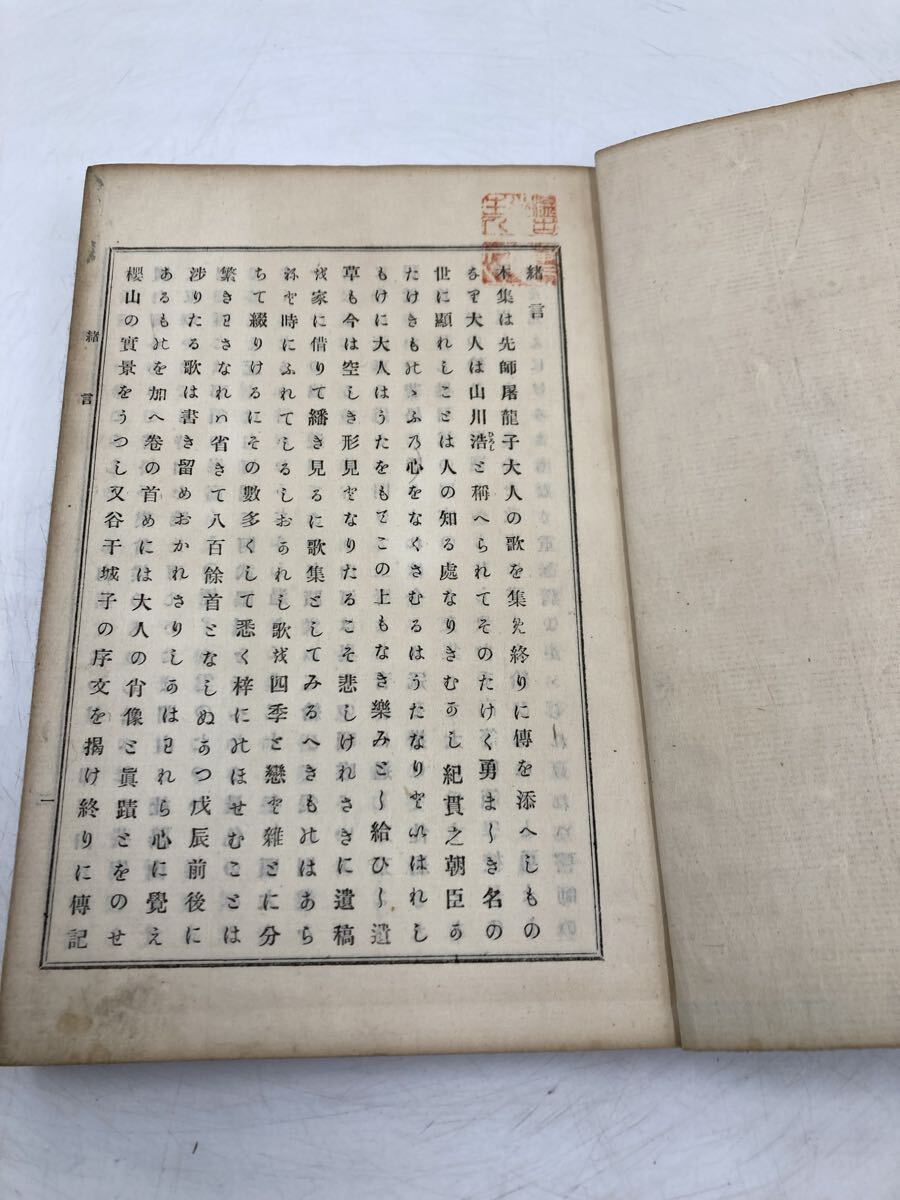 緒言
本集は先師屠龍子大人の歌を集め終りに傳を添へしもの
なり大人は山川浩ひろしと稱へられてそのたけく勇ましき名の
世に顯れしことは人の知る處なりきむかし紀貫之朝臣か
たけきものゝふ乃心をなくさむるはうたなりといはれし
もけに大人はうたをもてこの上もなき樂みとし給ひし遺
草も今は空しき形見となりたるこそ悲しけれさきに遺稿
を家に借りて繙き見るに歌集としてみるへきものはあら
ねと時にふれてしるしおかれし歌を四季と戀と雜とに分
ちて綴りけるにその數多くして悉く梓にのほせむことは
繁きわさなれハ省きて八百餘首となしぬかつ戊辰前後に
渉りたる歌は書き留めおかれさりしかはわれら心に覺え
あるものを加へ卷の首めには大人の肖像と眞蹟とをのせ
櫻山の實景をうつし又谷干城子の序文を掲け終りに傳記
緒言
一